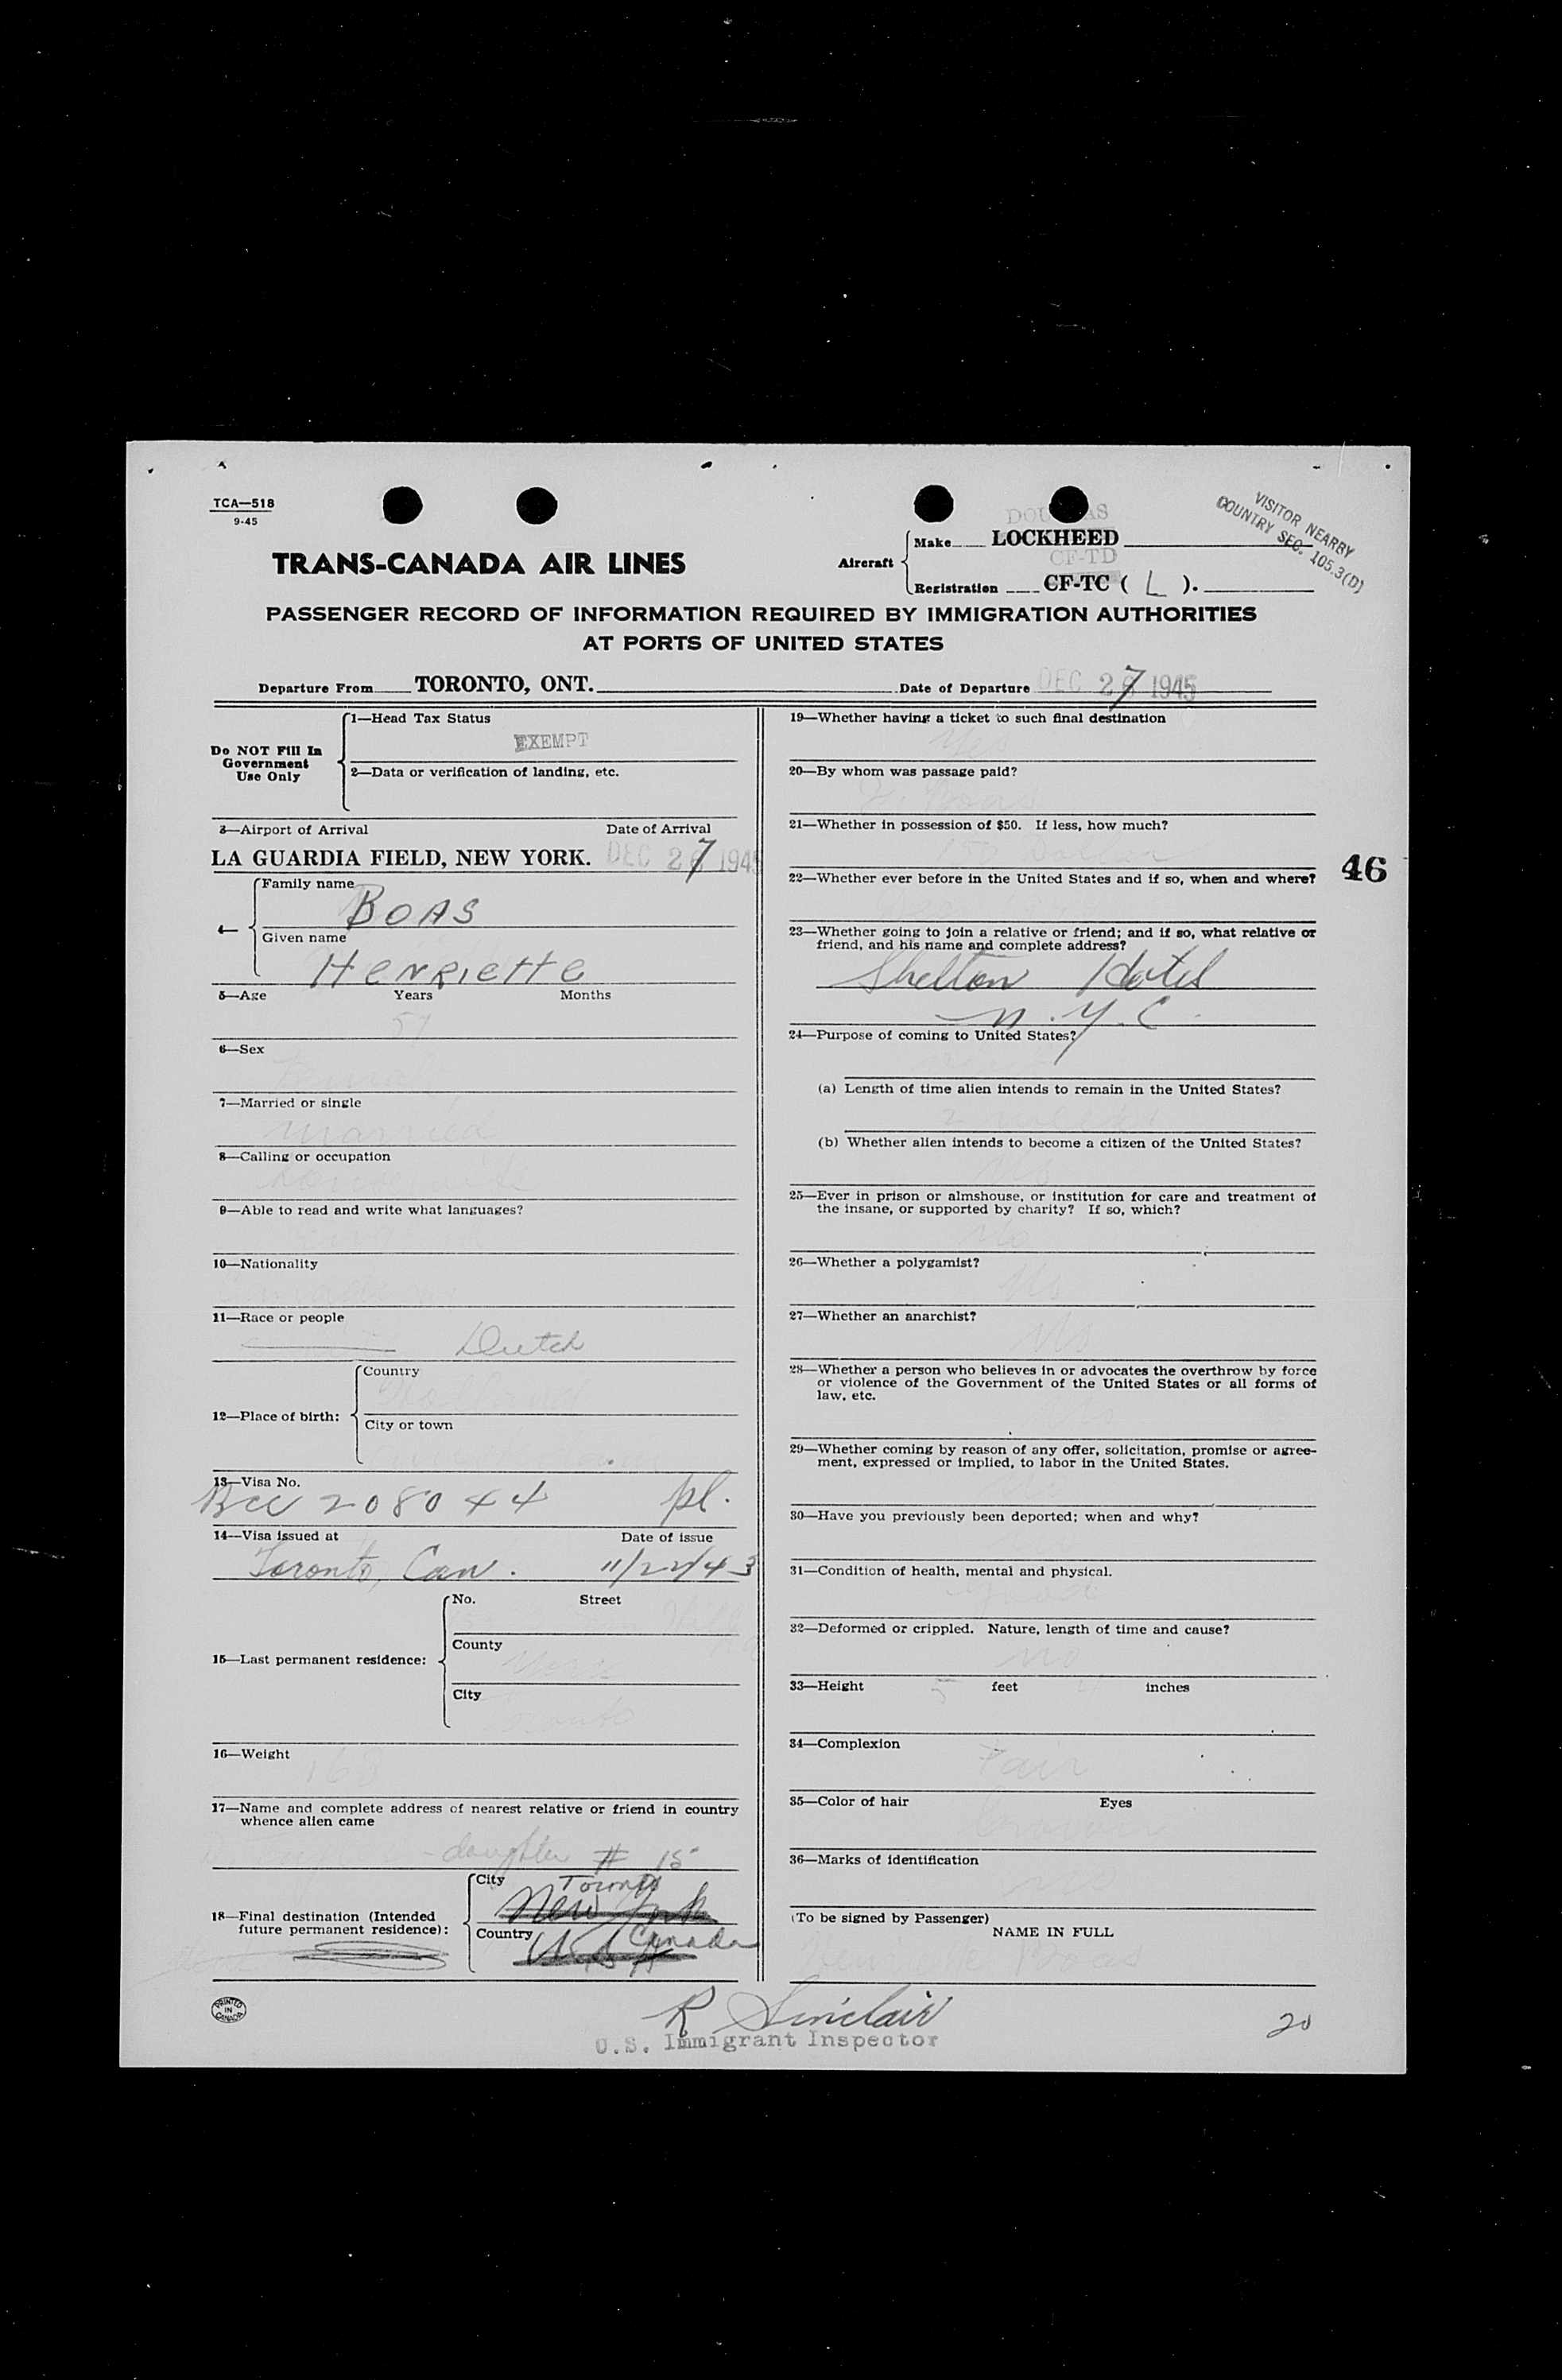 TCA—518
9-45
VISITOR NEARBY
COUNTRY SEC. 105.3(D)
DOUGLAS
TRANS-CANADA AIR LINES
Aircraft
Make LOCKHEED
CF-TD
Registration CF-TC ( L ).
PASSENGER RECORD OF INFORMATION REQUIRED BY IMMIGRATION AUTHORITIES
AT PORTS OF UNITED STATES
Departure From TORONTO, ONT. Date of Departure DEC 27 1945
Do NOT Fill In
Government
Use Only
1—Head Tax Status
EXEMPT
2—Data or verification of landing, etc.
3—Airport of Arrival Date of Arrival
LA GUARDIA FIELD, NEW YORK. DEC 27 1945
4—
Family name
BOAS
Given name
HENRIETTE
5—Age Years Months
57
6—Sex
Female
7—Married or single
Married
8—Calling or occupation
9—Able to read and write what languages?
10—Nationality
11—Race or people
Dutch
12—Place of birth:
Country
City or town
13—Visa No.
Bcc 208044 pl.
14—Visa issued at Date of issue
Toronto, Can. 11/22/43
15—Last permanent residence:
No. Street
County
York
City
Toronto
16—Weight
168
17—Name and complete address of nearest relative or friend in country
whence alien came
- daughter # 15
18—Final destination (Intended
future permanent residence):
City Toronto
New York
Country Canada
U.S.A
19—Whether having a ticket to such final destination
Yes
20—By whom was passage paid?
H. Boas
21—Whether in possession of $50. If less, how much?
150 Dollar
22—Whether ever before in the United States and if so, when and where?
46
23—Whether going to join a relative or friend; and if so, what relative or
friend, and his name and complete address?
Shelton Hotel
N.Y.C.
24—Purpose of coming to United States?
(a) Length of time alien intends to remain in the United States?
2
(b) Whether alien intends to become a citizen of the United States?
No
25—Ever in prison or almshouse, or institution for care and treatment of
the insane, or supported by charity? If so, which?
No
26—Whether a polygamist?
No
27—Whether an anarchist?
No
28—Whether a person who believes in or advocates the overthrow by force
or violence of the Government of the United States or all forms of
law, etc.
29—Whether coming by reason of any offer, solicitation, promise or agree-
ment, expressed or implied, to labor in the United States.
30—Have you previously been deported; when and why?
31—Condition of health, mental and physical.
good
32—Deformed or crippled. Nature, length of time and cause?
no
33—Height 5 feet inches
34—Complexion
Fair
35—Color of hair Eyes
36—Marks of identification
(To be signed by Passenger)
NAME IN FULL
Henriette Boas
PRINTED
IN
CANADA
R Sinclair
U.S. Immigrant Inspector
20